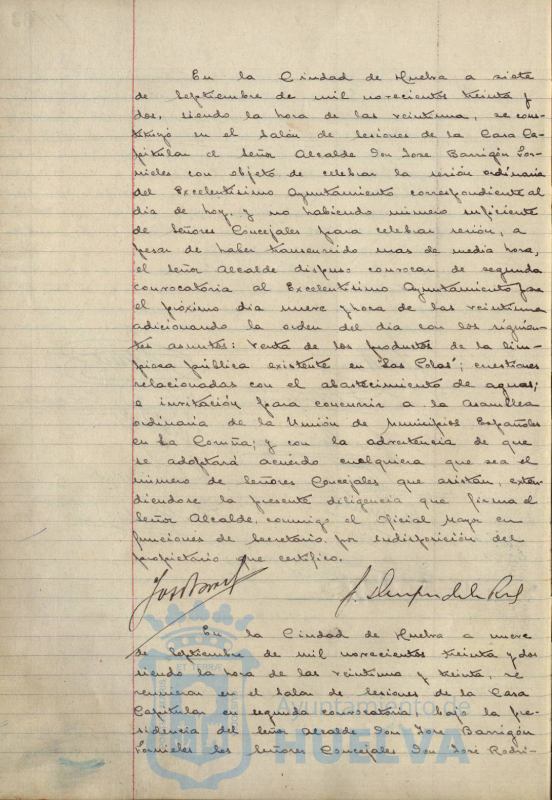 En la Ciudad de Huelva a siete
de Septiembre de mil novecientos treinta y
dos, siendo la hora de las veintiuna, se cons-
tituyó en el Salón de Sesiones de la Casa Ca-
pitular el Señor Alcalde Don Jose Barrigón For-
nieles con objeto de celebrar la sesión ordinaria
del Excelentísimo Ayuntamiento correspondiente al
dia de hoy, y no habiendo número suficiente
de Señores Concejales para celebrar sesión, a
pesar de haber transcurrido mas de media hora,
el Señor Alcalde dispuso convocar de segunda
convocatoria al Excelentísimo Ayuntamiento para
el próximo dia nueve y hora de las veintiuna
adicionando la orden del dia con los siguien-
tes asuntos: Venta de los productos de la lim-
pieza pública existente en "Las Colas"; cuestiones
relacionadas con el abastecimiento de aguas;
e invitación para concurrir a la Asamblea
ordinaria de la Unión de Municipios Españoles
en La Coruña; y con la advertencia de que
se adoptará acuerdo cualquiera que sea el
número de Señores Concejales que asistan, exten-
diendose la presente diligencia que firma el
Señor Alcalde, conmigo el Oficial Mayor en
funciones de Secretario por indisposición del
propietario que certifico.
En la Ciudad de Huelva a nueve
de Septiembre de mil novecientos treinta y dos
siendo la hora de las veintiuna y treinta, se
reunieron en el Salón de Sesiones de la Casa
Capitular en segunda convocatoria, bajo la pre-
sidencia del Señor Alcalde Don Jose Barrigón
Fornieles los Señores Concejales Don José Rodrí-
ET TERRÆ
Ayuntamiento de
HUELVA